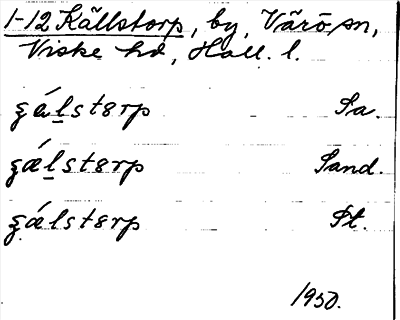 1-12 Källstorp, by, Värö sn,
Viske hd, Hall. l.
ʒálstorp Sa.
ʒǽlstorp Sand.
ʒálstorp St.
1950.